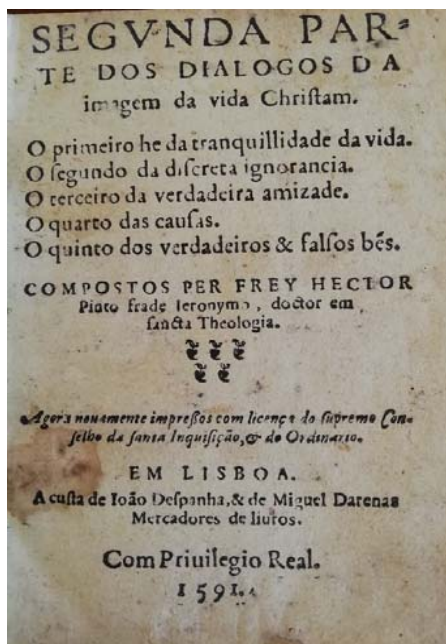 SEGVNDA PAR-
TE DOS DIALOGOS DA
imagem da vida Christam.
O primeiro he da tranquillidade da vida.
O ſegundo da diſcreta ignorancia.
O terceiro da verdadeira amizade.
O quarto das cauſas.
O quinto dos verdadeiros & falſos bẽs.
COMPOSTOS PER FREY HECTOR
Pinto frade Ieronymo, doctor em
ſancta Theologia.
Agora nouamente impreſſos com licença do ſupremo Con-
ſelho da ſanta Inquiſição, & do Ordinario.
EM LISBOA.
A cuſta de Ioão Deſpanha, & de Miguel Darenas
Mercadores de liuros.
Com Priuilegio Real.
1591.